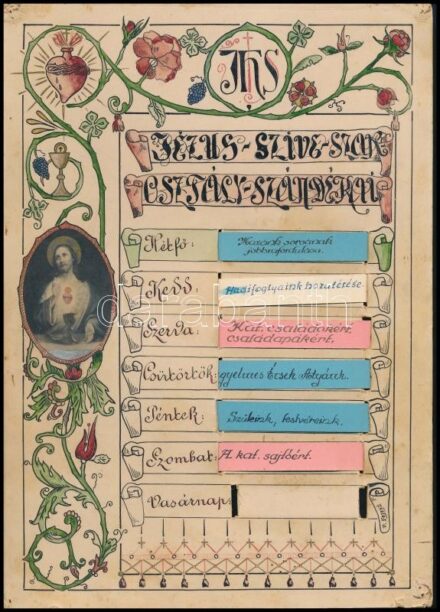 JHS
JÉZUS-SZÍVE-SZAK
OSZTÁLY-SZÁNDÉKAI
Hétfő: Hazánk sorsának
jobbrafordulása.
Kedd: Hadifoglyaink hazatérése.
Szerda: Kat. családokért,
családapákért.
Csütörtök: gyelmes Érsek Atyánk.
Péntek: Szüleink, testvéreink.
Szombat: A kat. sajtóért.
Vasárnap:
darabanth